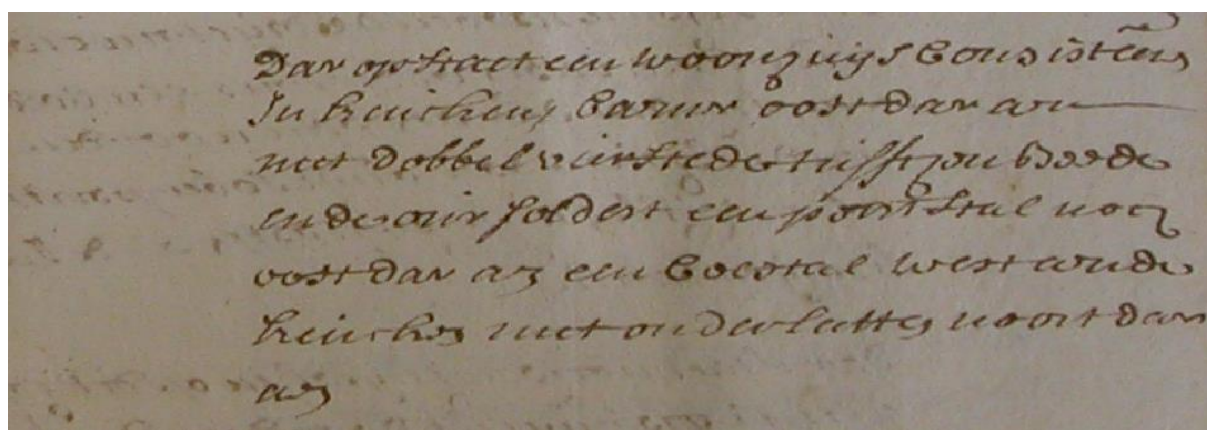 Dar op staet een woonhuijs Consisteren
In keucken, Camer oost dar an
met dobbel vierstede tusschen beede
ende over soldert een peert stal noch
oost dar an een Coestal west ande
keucken met onderlatten noort dar
an